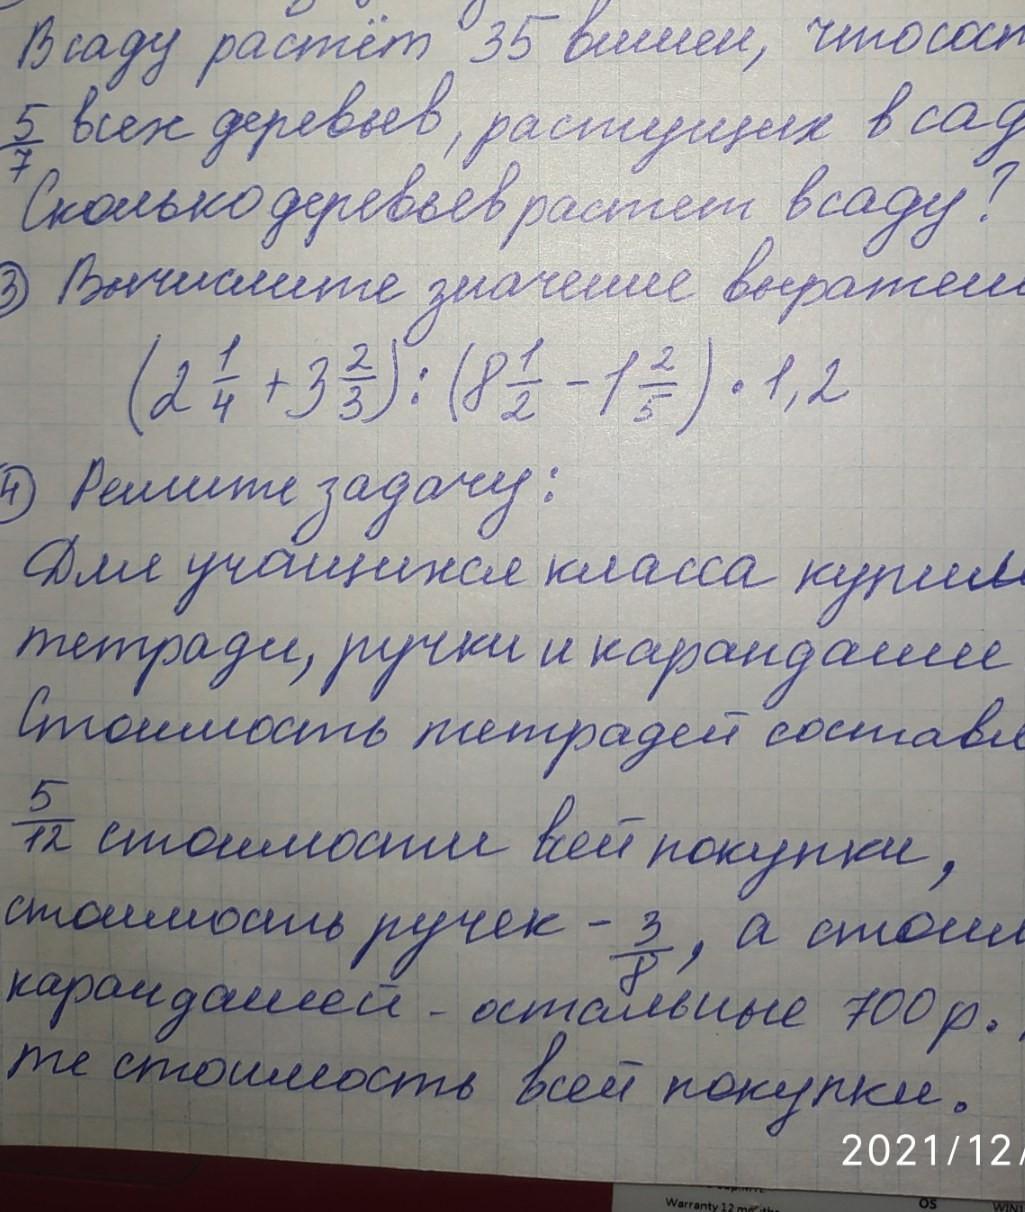 В саду растёт 35 вишен, что сост
5/7 всех деревьев, растущих в сад
Сколько деревьев растет в саду?
3) Вычислите значение выражени
(2 1/4 + 3 2/3) : (8 1/2 - 1 2/5) · 1,2
4) Решите задачу:
Для учащихся класса купили
тетради, ручки и карандаши
Стоимость тетрадей составл
5/12 стоимости всей покупки,
стоимость ручек - 3/8, а стоим
карандашей - остальные 700 р.
те стоимость всей покупки.
2021/12/
Warranty 12 months
OS
WIN